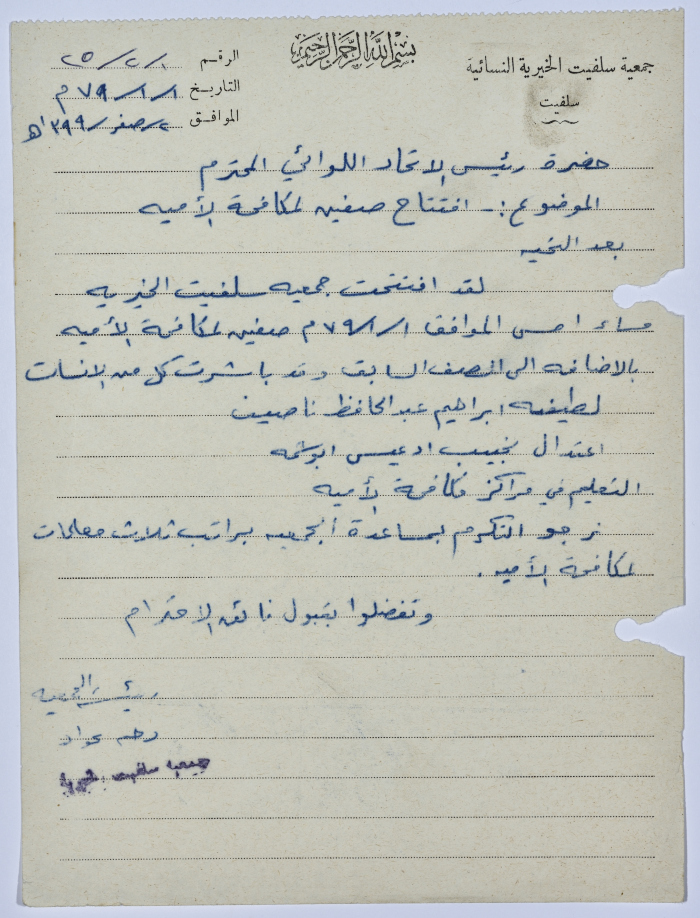 بسم الله الرحمن الرحيم
جمعية سلفيت الخيرية النسائية
سلفيت
الرقم ٢٥/٢/١
التاريخ ٧٩/١/١ م
الموافق ٢/صفر/١٣٩٩هـ
حضرة رئيس الاتحاد اللوائي المحترم
الموضوع :- افتتاح صفين لمكافحة الأميه
بعد التحيه
لقد افتتحت جمعيه سلفيت الخيريه
مساء امس الموافق ٧٩/١/١ م صفين لمكافحة الأميه
بالاضافه الى الصف السابق وقد باشرت كل من الانسات
لطيفه ابراهيم عبد الحافظ ناصيف
اعتدال نجيب ادعيس ابو شمه
التعليم في مراكز مكافحة الأميه
نرجو التكرم بمساعدة الجمعيه براتب ثلاث معلمات
لمكافحة الأميه .
وتفضلوا بقبول فائق الاحترام
رئيسة الجمعيه
جمعية سلفيت الخيرية